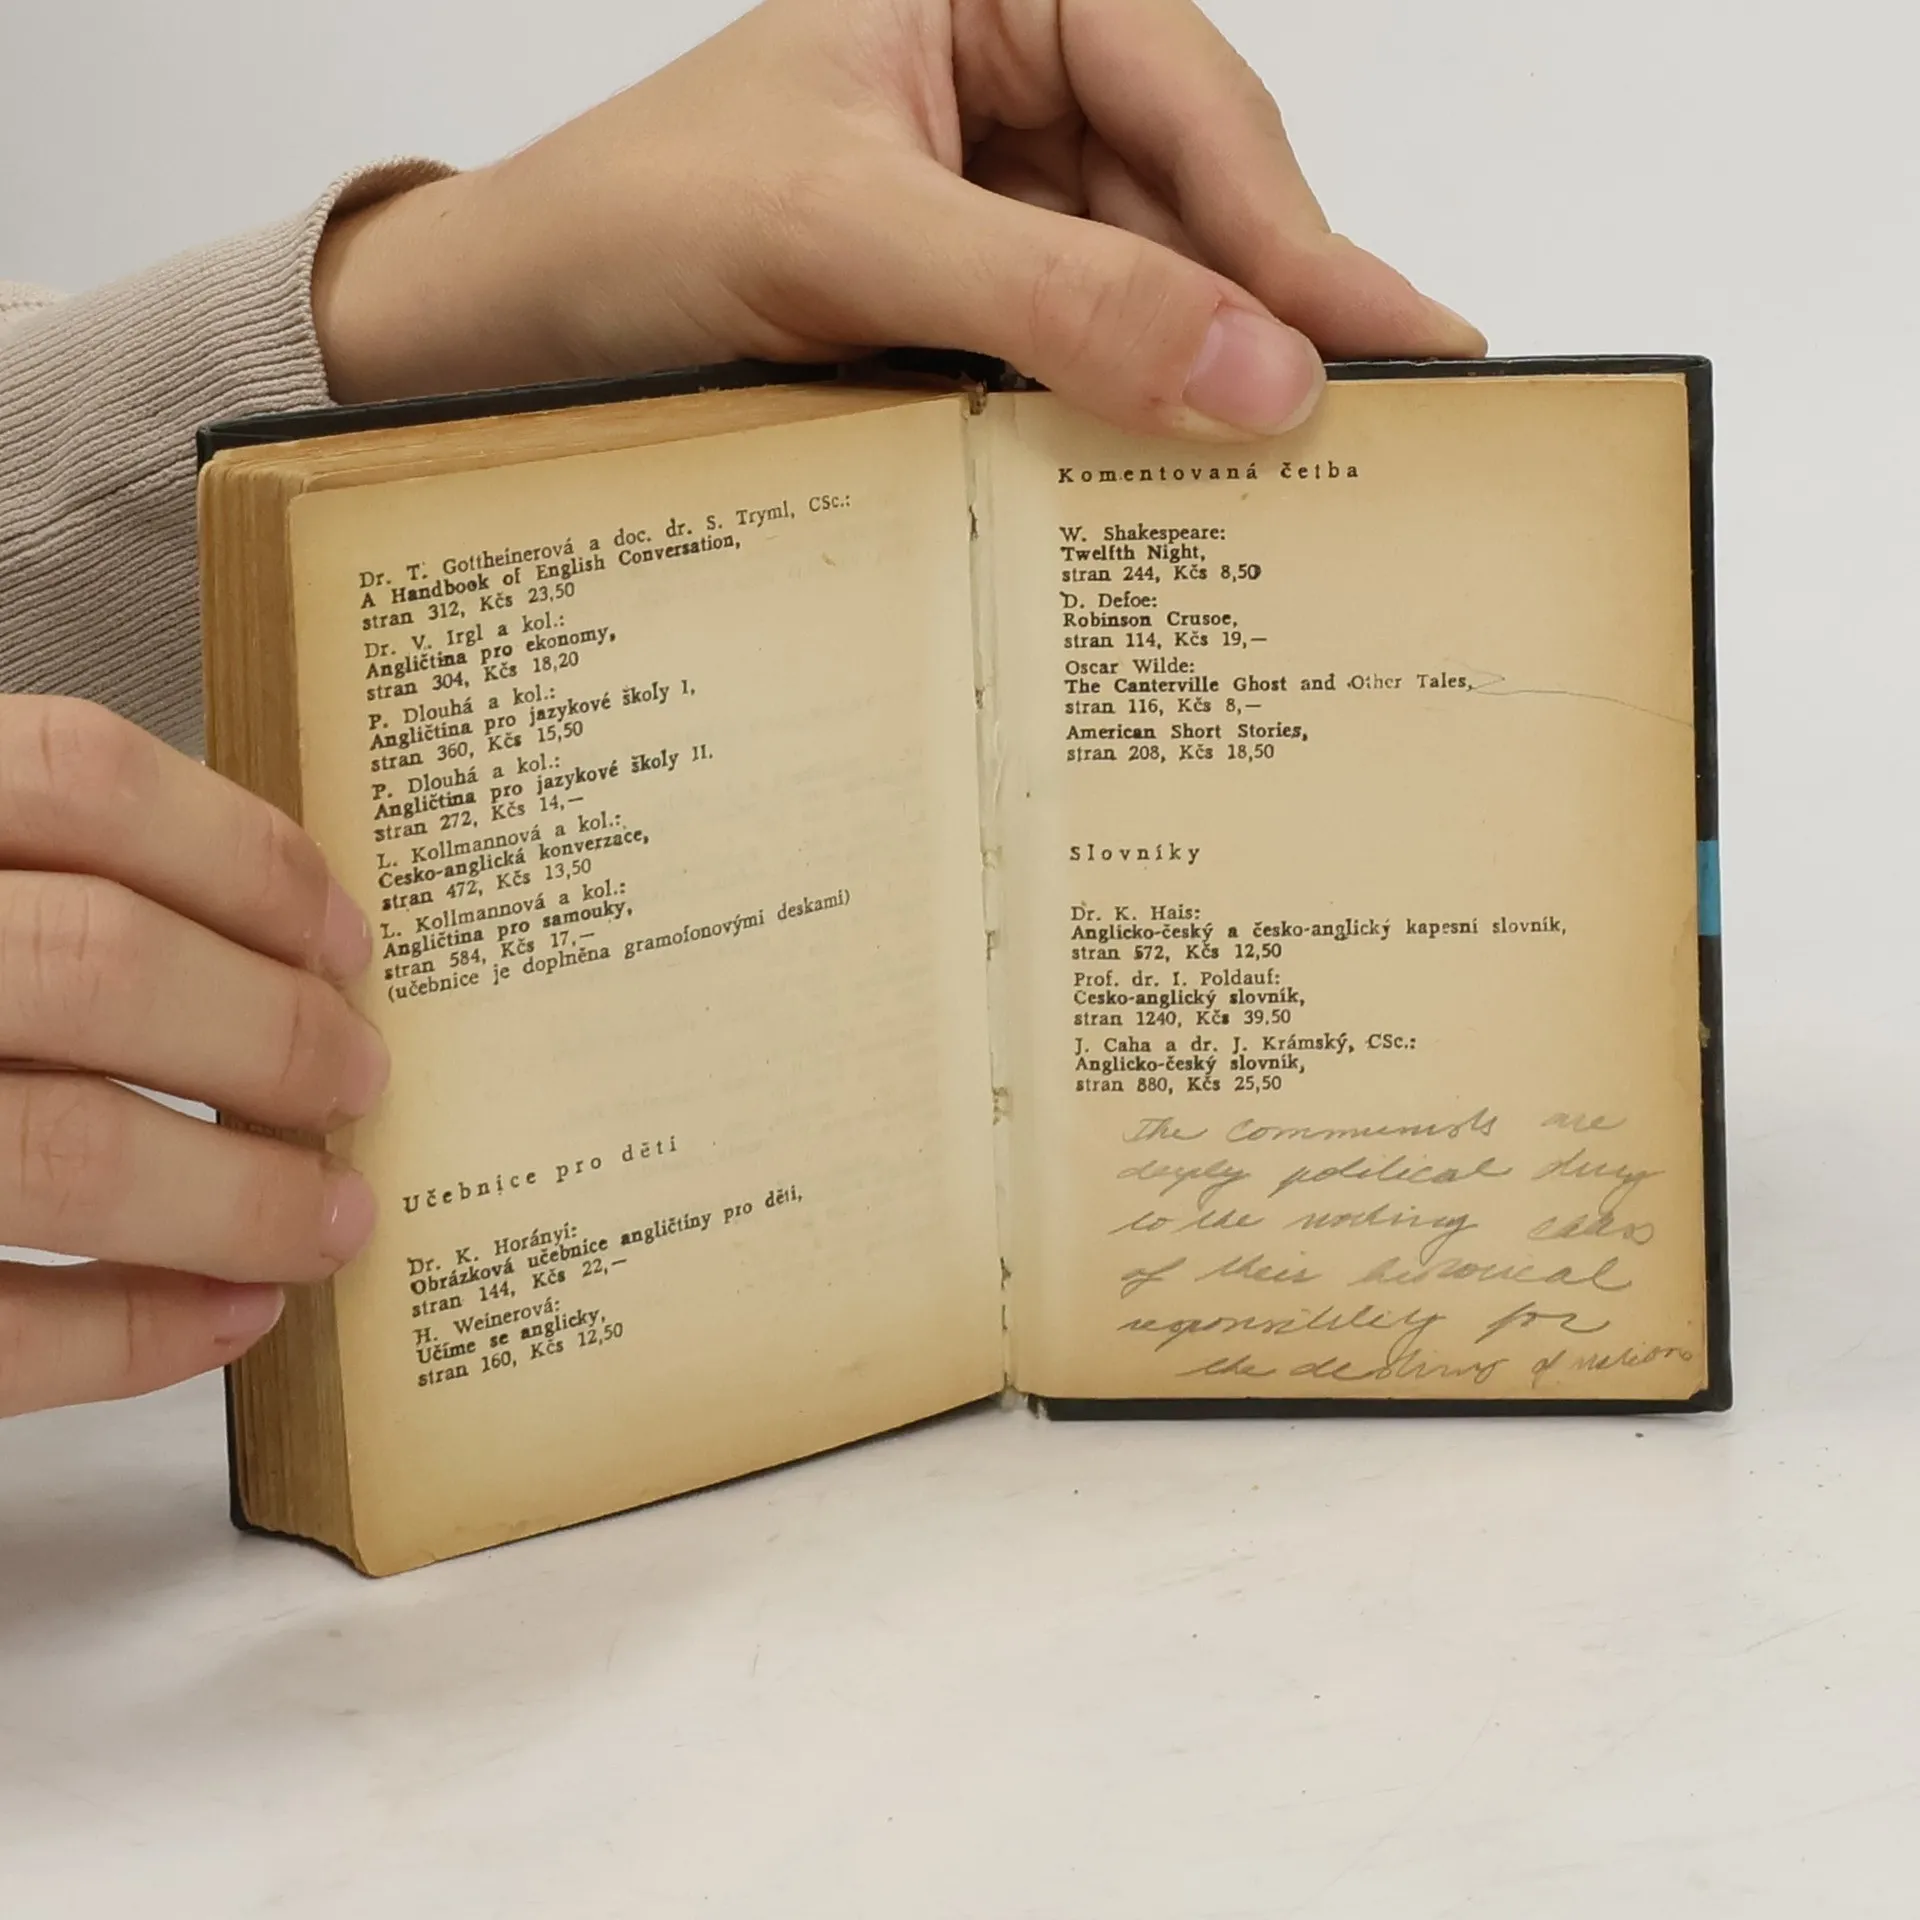 Dr. T. Gottheinerová a doc. dr. S. Tryml, CSc.:
A Handbook of English Conversation,
stran 312, Kčs 23,50
Dr. V. Irgl a kol.:
Angličtina pro ekonomy,
stran 304, Kčs 18,20
P. Dlouhá a kol.:
Angličtina pro jazykové školy I,
stran 360, Kčs 15,50
P. Dlouhá a kol.:
Angličtina pro jazykové školy II.
stran 272, Kčs 14,—
L. Kollmannová a kol.:
Česko-anglická konverzace,
stran 472, Kčs 13,50
L. Kollmannová a kol.:
Angličtina pro samouky,
stran 584, Kčs 17,—
(učebnice je doplněna gramofonovými deskami)
Učebnice pro děti
Dr. K. Horányi:
Obrázková učebnice angličtiny pro děti,
stran 144, Kčs 22,—
H. Weinerová:
Učíme se anglicky,
stran 160, Kčs 12,50
Komentovaná četba
W. Shakespeare:
Twelfth Night,
stran 244, Kčs 8,50
D. Defoe:
Robinson Crusoe,
stran 114, Kčs 19,—
Oscar Wilde:
The Canterville Ghost and Other Tales,
stran 116, Kčs 8,—
American Short Stories,
stran 208, Kčs 18,50
Slovníky
Dr. K. Hais:
Anglicko-český a česko-anglický kapesní slovník,
stran 572, Kčs 12,50
Prof. dr. I. Poldauf:
Česko-anglický slovník,
stran 1240, Kčs 39,50
J. Caha a dr. J. Krámský, CSc.:
Anglicko-český slovník,
stran 880, Kčs 25,50
The communists are
deeply political
to the working class
of their historical
responsibility for
the destiny of nations